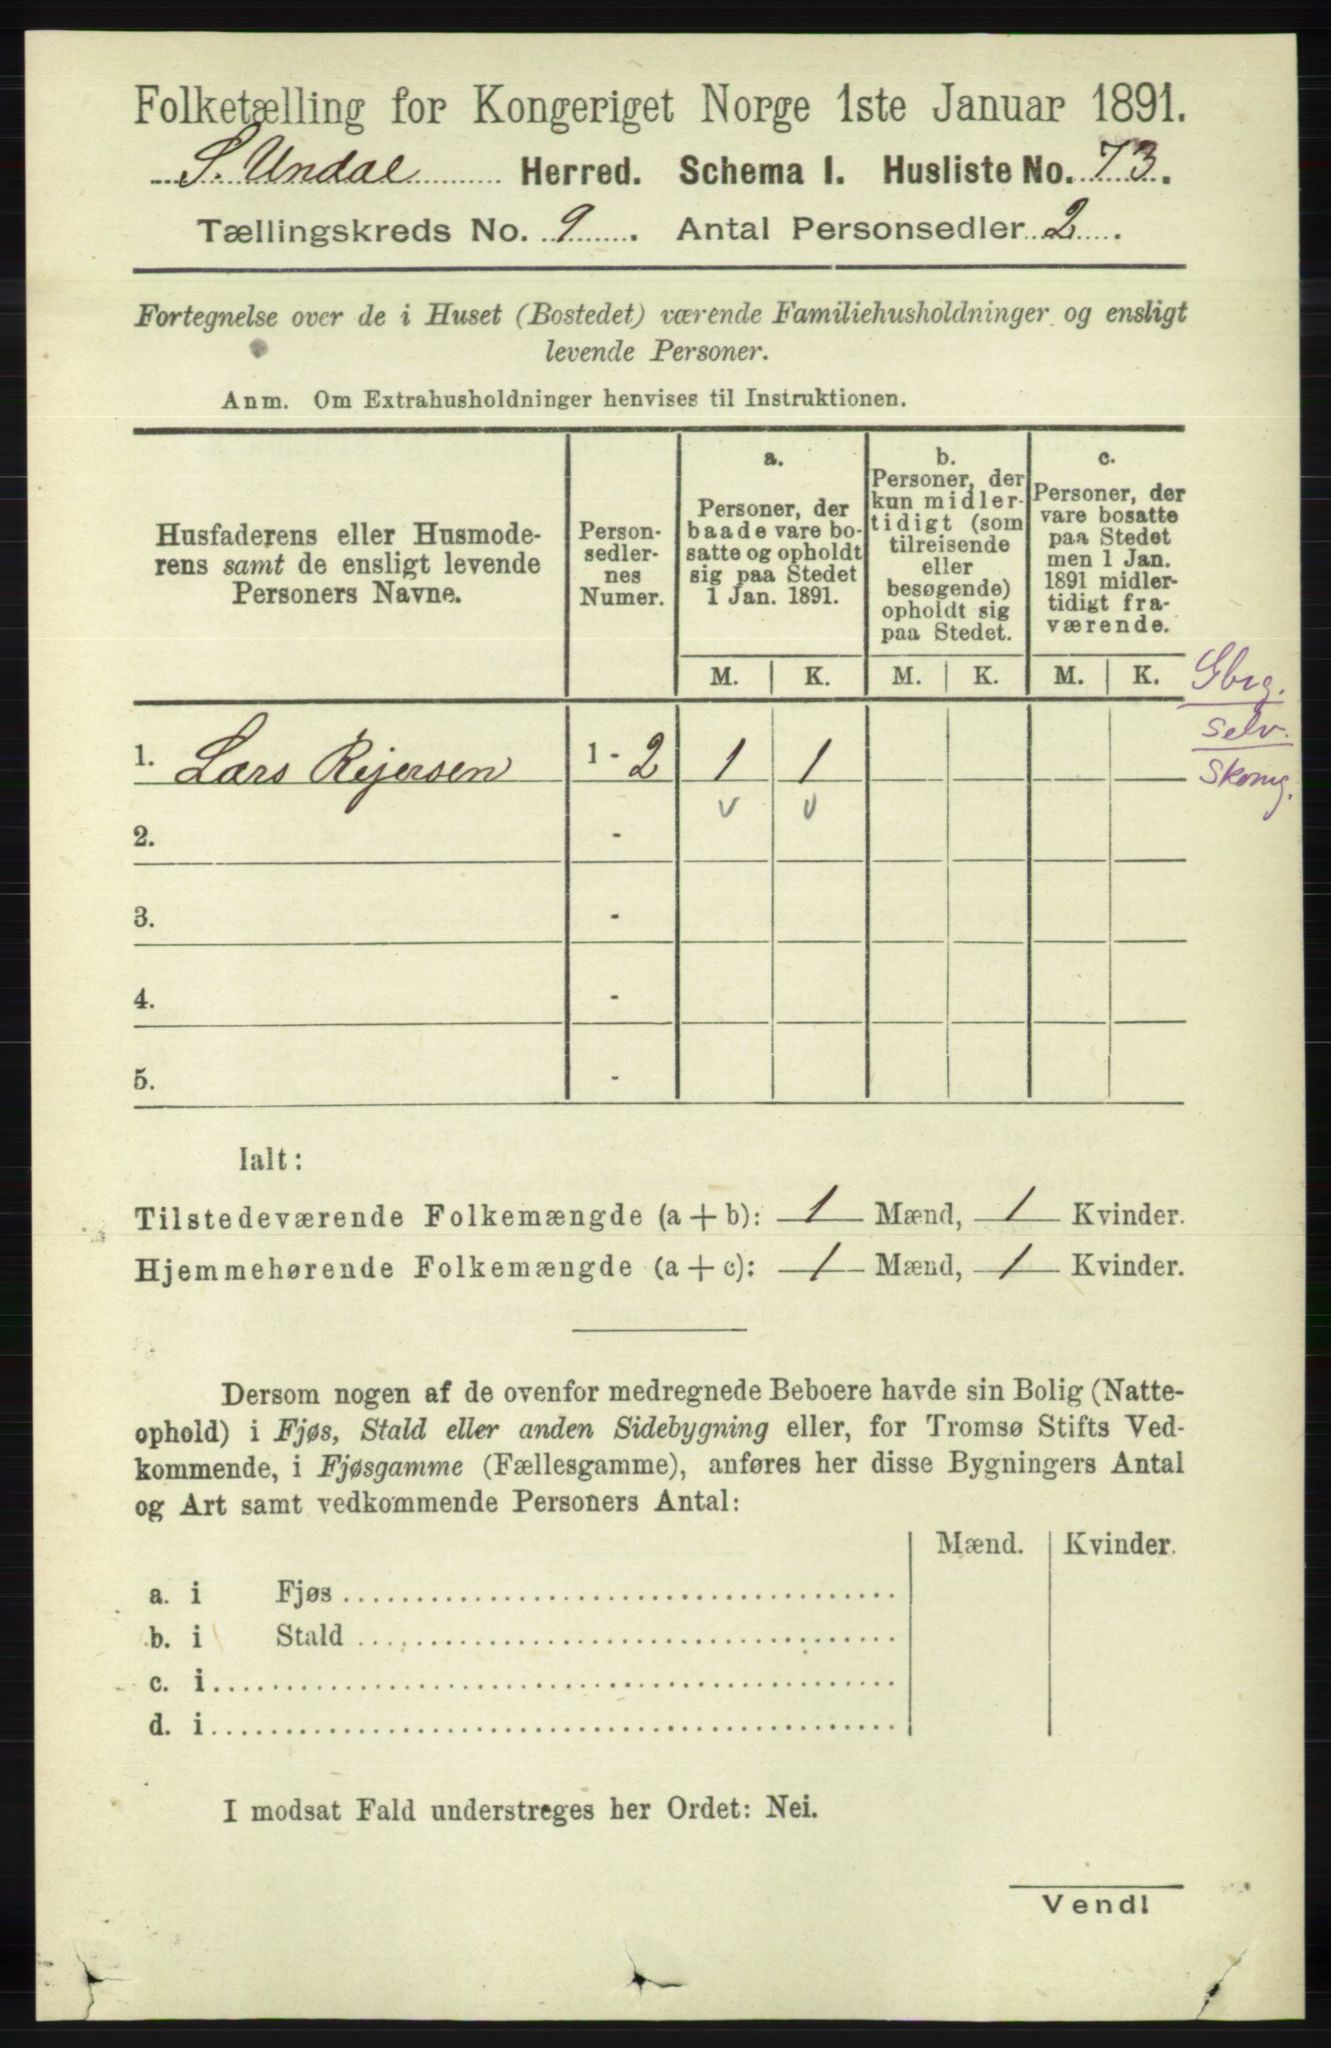 Folketælling for Kongeriget Norge 1ste Januar 1891.
S. Undal Herred. Schema I. Husliste No. 73.
Tællingskreds No. 9. Antal Personsedler 2.
Fortegnelse over de i Huset (Bostedet) værende Familiehusholdninger og ensligt
levende Personer.
Anm. Om Extrahusholdninger henvises til Instruktionen.
Husfaderens eller Husmode-
rens samt de ensligt levende
Personers Navne.
Person-
sedler-
nes
Numer.
a.
Personer, der
baade vare bo-
satte og opholdt
sig paa Stedet
1 Jan. 1891.
b.
Personer, der
kun midler-
tidigt (som
tilreisende
eller
besøgende)
opholdt sig
paa Stedet.
c.
Personer, der
vare bosatte
paa Stedet
men 1 Jan.
1891 midler-
tidigt fra-
værende.
M. K. M. K. M. K.
Gbrg.
Selv.
Skomg.
1. Lars Rejersen 1 - 2 1 1
2. -
3. -
4. -
5. -
Ialt:
Tilstedeværende Folkemængde (a + b): 1 Mænd, 1 Kvinder.
Hjemmehørende Folkemængde (a + c): 1 Mænd, 1 Kvinder.
Dersom nogen af de ovenfor medregnede Beboere havde sin Bolig (Natte-
ophold) i Fjøs, Stald eller anden Sidebygning eller, for Tromsø Stifts Ved-
kommende, i Fjøsgamme (Fællesgamme), anføres her disse Bygningers Antal
og Art samt vedkommende Personers Antal:
Mænd. Kvinder.
a. i Fjøs
b. i Stald
c. i
d. i
I modsat Fald understreges her Ordet: Nei.
Vend!